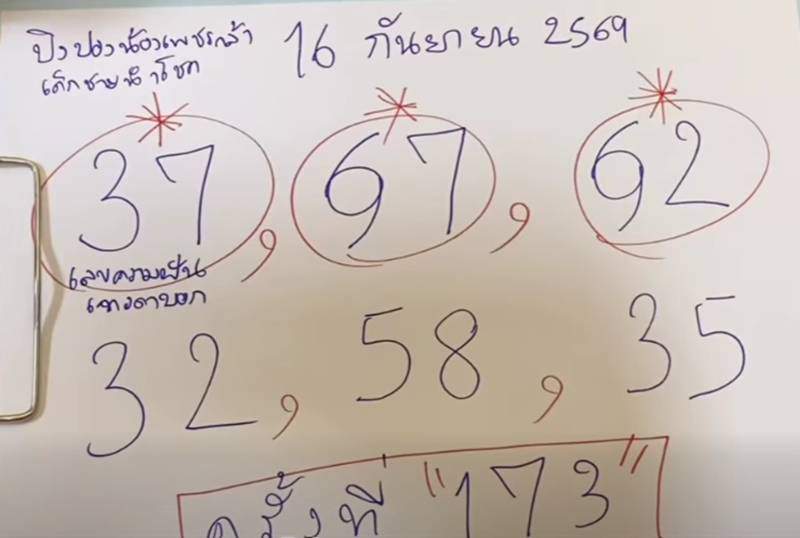 ปิงปองน้องเพชรกล้า 16 กันยายน 2569
เด็กชายนำโชค
37, 67, 62
เลขความฝัน
เทวดาบอก
32, 58, 35
ครั้งที่ "173"